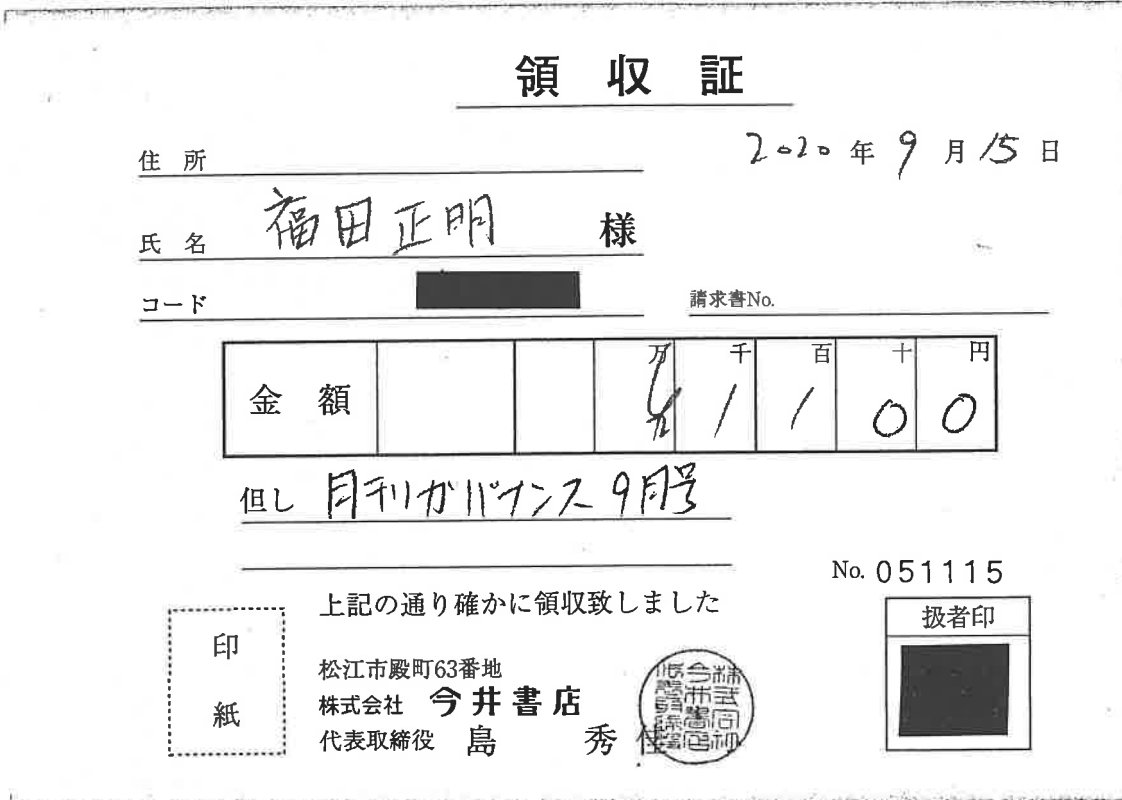 領収証
2020年9月15日
住所
氏名 福田正明 様
コード
請求書No.
金額 万 千 百 十 円
1 1 0 0
但し 月刊ガバナンス 9月号
No. 051115
上記の通り確かに領収致しました
扱者印
印紙
松江市殿町63番地
株式会社 今井書店
代表取締役 島 秀佳